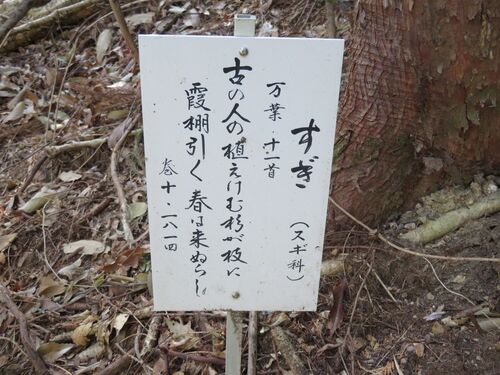 すぎ
(スギ科)
万葉・十一首
古の人の植えけむ杉が枝に
霞棚引く春は来ぬらし
巻十・一八一四